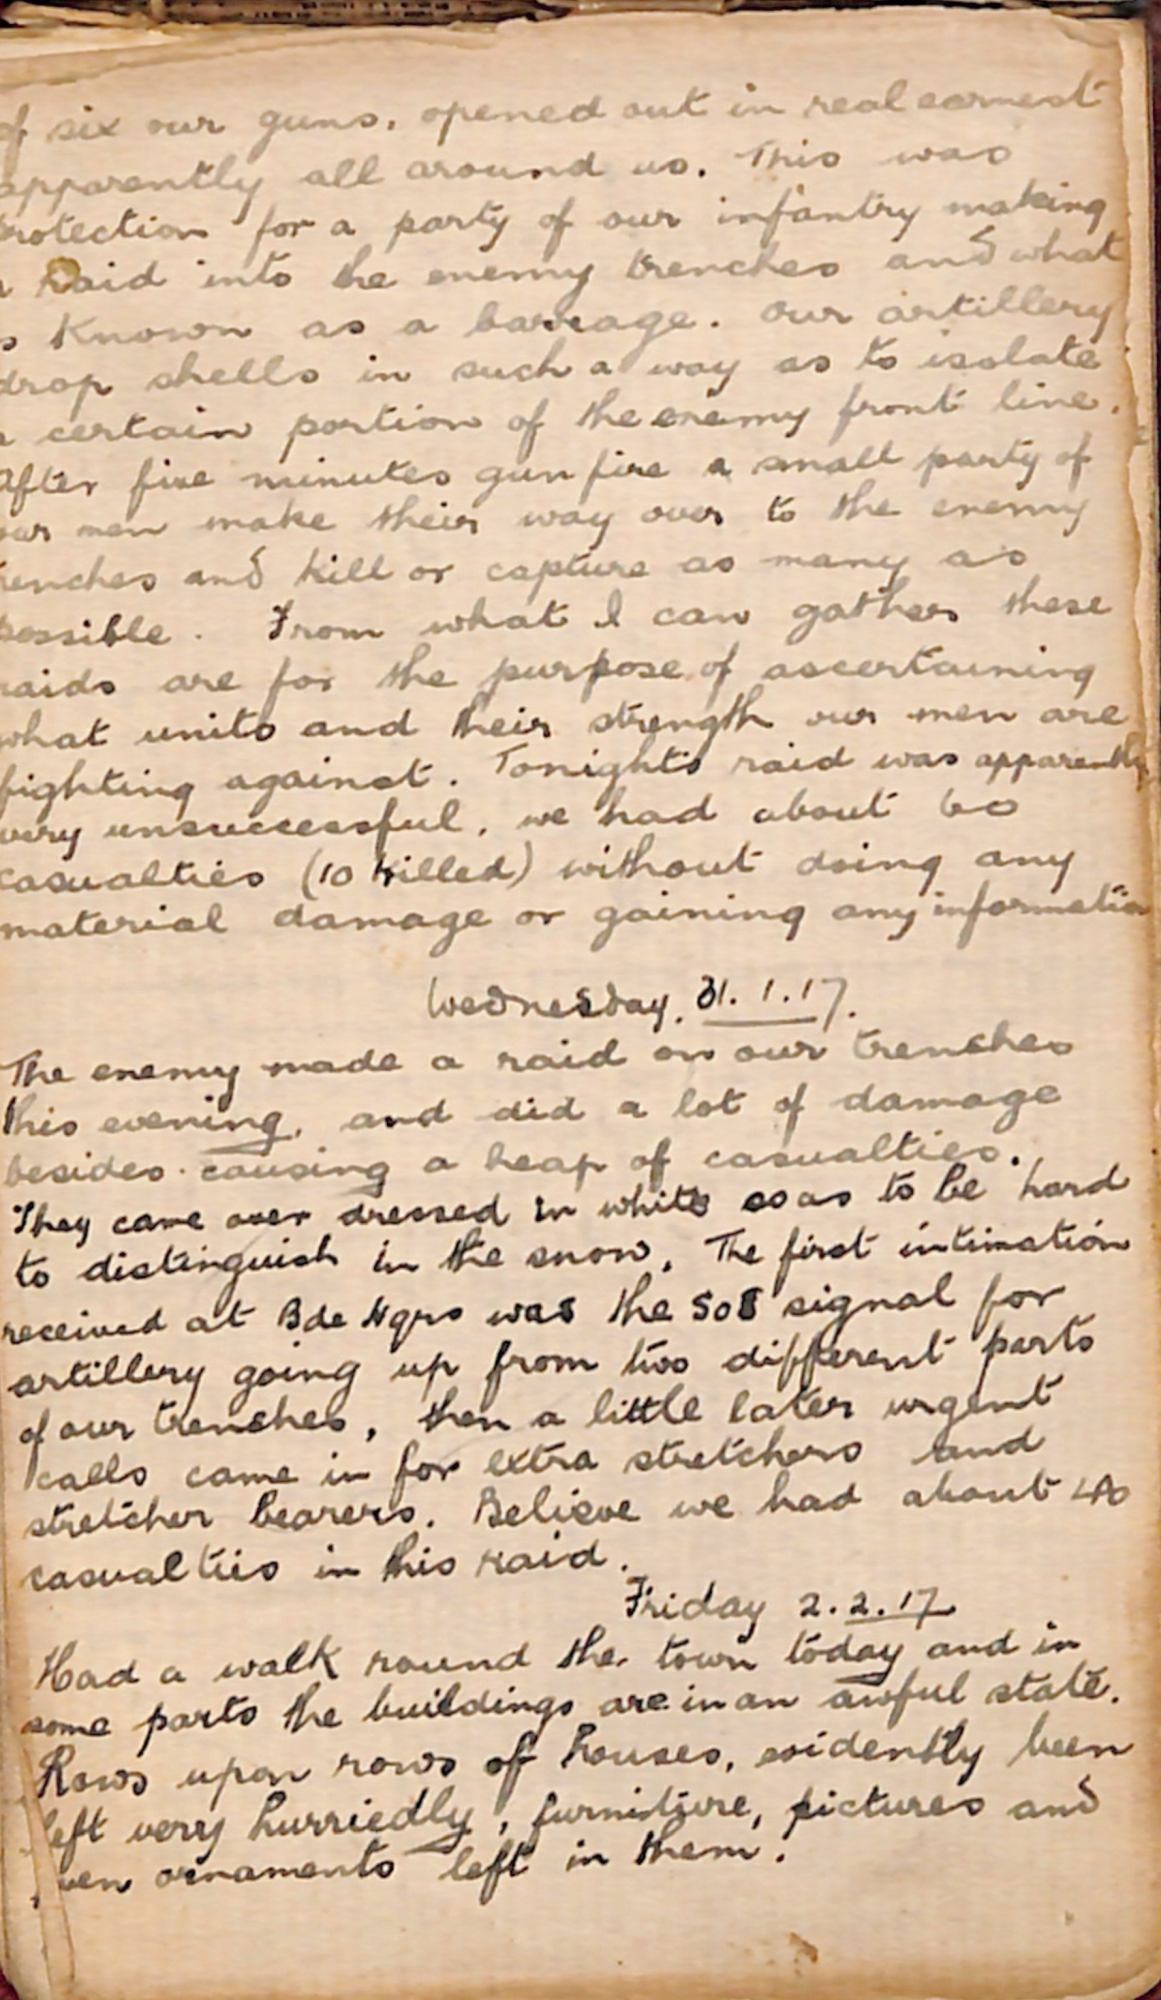 of six our guns, opened out in real earnest
apparently all around us. This was
protection for a party of our infantry making
a Raid into the enemy trenches and what
is known as a barrage. Our artillery
drop shells in such a way as to isolate
a certain portion of the enemy front line.
After five minutes gun fire a small party of
our men make their way over to the enemy
trenches and kill or capture as many as
possible. From what I can gather these
raids are for the purpose of ascertaining
what units and their strength our men are
fighting against. Tonights raid was apparently
very unsuccessful, we had about 60
casualties (10 killed) without doing any
material damage or gaining any information
Wednesday, 31.1.17.
The enemy made a raid on our trenches
this evening, and did a lot of damage
besides causing a heap of casualties.
They came over dressed in white so as to be hard
to distinguish in the snow. The first intimation
received at Bde Hqrs was the SOS signal for
artillery going up from two different parts
of our trenches, then a little later urgent
calls came in for extra stretchers and
stretcher bearers. Believe we had about 40
casualties in this raid.
Friday 2.2.17
Had a walk round the town today and in
some parts the buildings are in an awful state.
Rows upon rows of houses, evidently been
left very hurriedly, furniture, pictures and
even ornaments left in them.